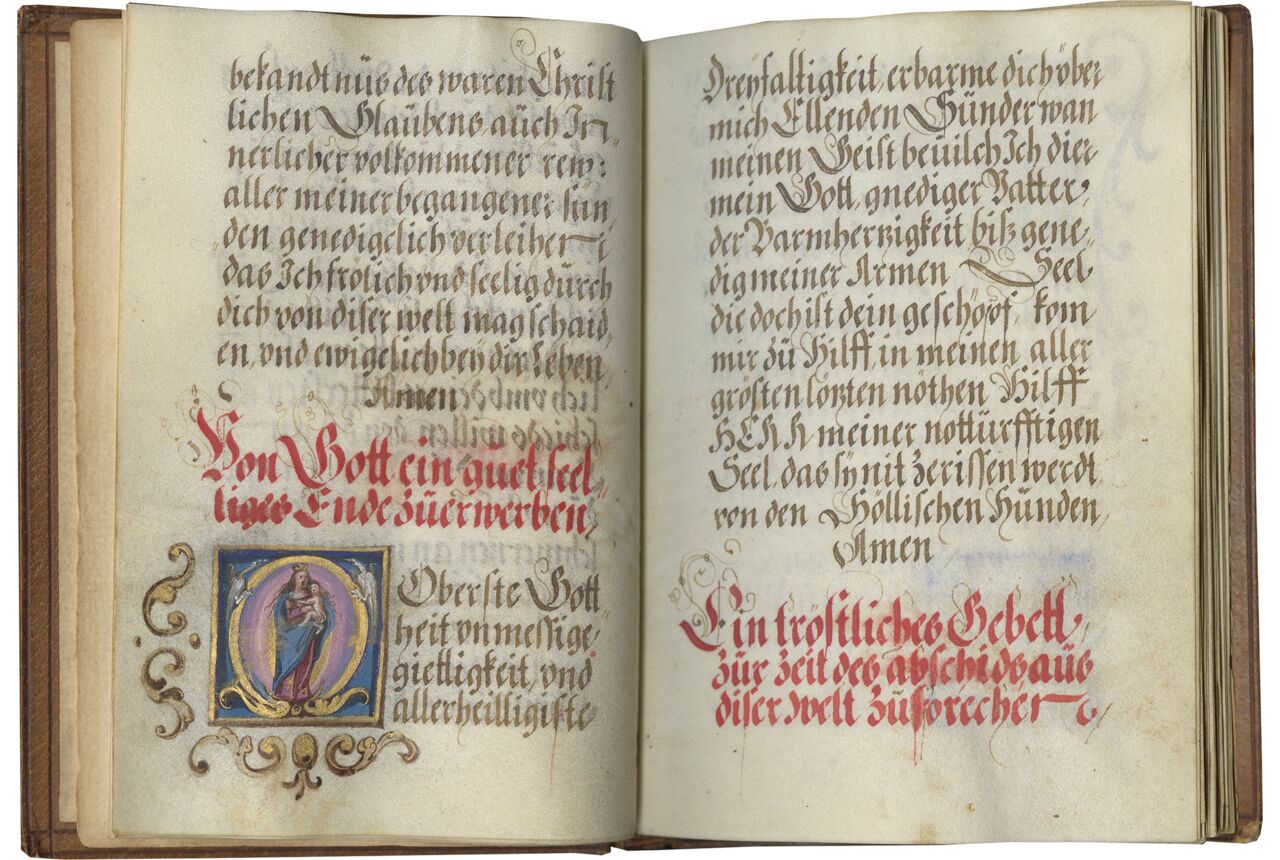 bekandtnüs des waren Christ
lichen Glaübens, aüch In„
nerlicher volkommener rew:
aller meiner begangener sün„
den genedigclich verleihen
das Ich frölich vnd seelig dürch
dich von diser welt mag schaid„
en, vnd ewigclich bey dir Leben,
Amen
Von Gott ein guet seel„
liges Ende züerwerben,
O Oberste Gott
heit vnmessige
gietligkeit, vnd
allerheilligiste
Dreyfaltigkeit, erbarme dich über
mich Ellenden Sünder wan
meinen Geist beuilch Ich dier
mein Gott, gnediger Vatter,
der Barmhertzigkeit biss gene„
dig meiner Armen Seel
die doch ist dein geschöpf, kom
mir zü Hilff, in meinen aller
grösten lötzten nöthen Hilff
HERR meiner nottürfftigen
Seel, das sy nit zerissen werdt
von den Höllischen Hünden,
Amen
Ein tröstliches Gebett,
zür zeit des abschids aüs
diser Welt züsprechen